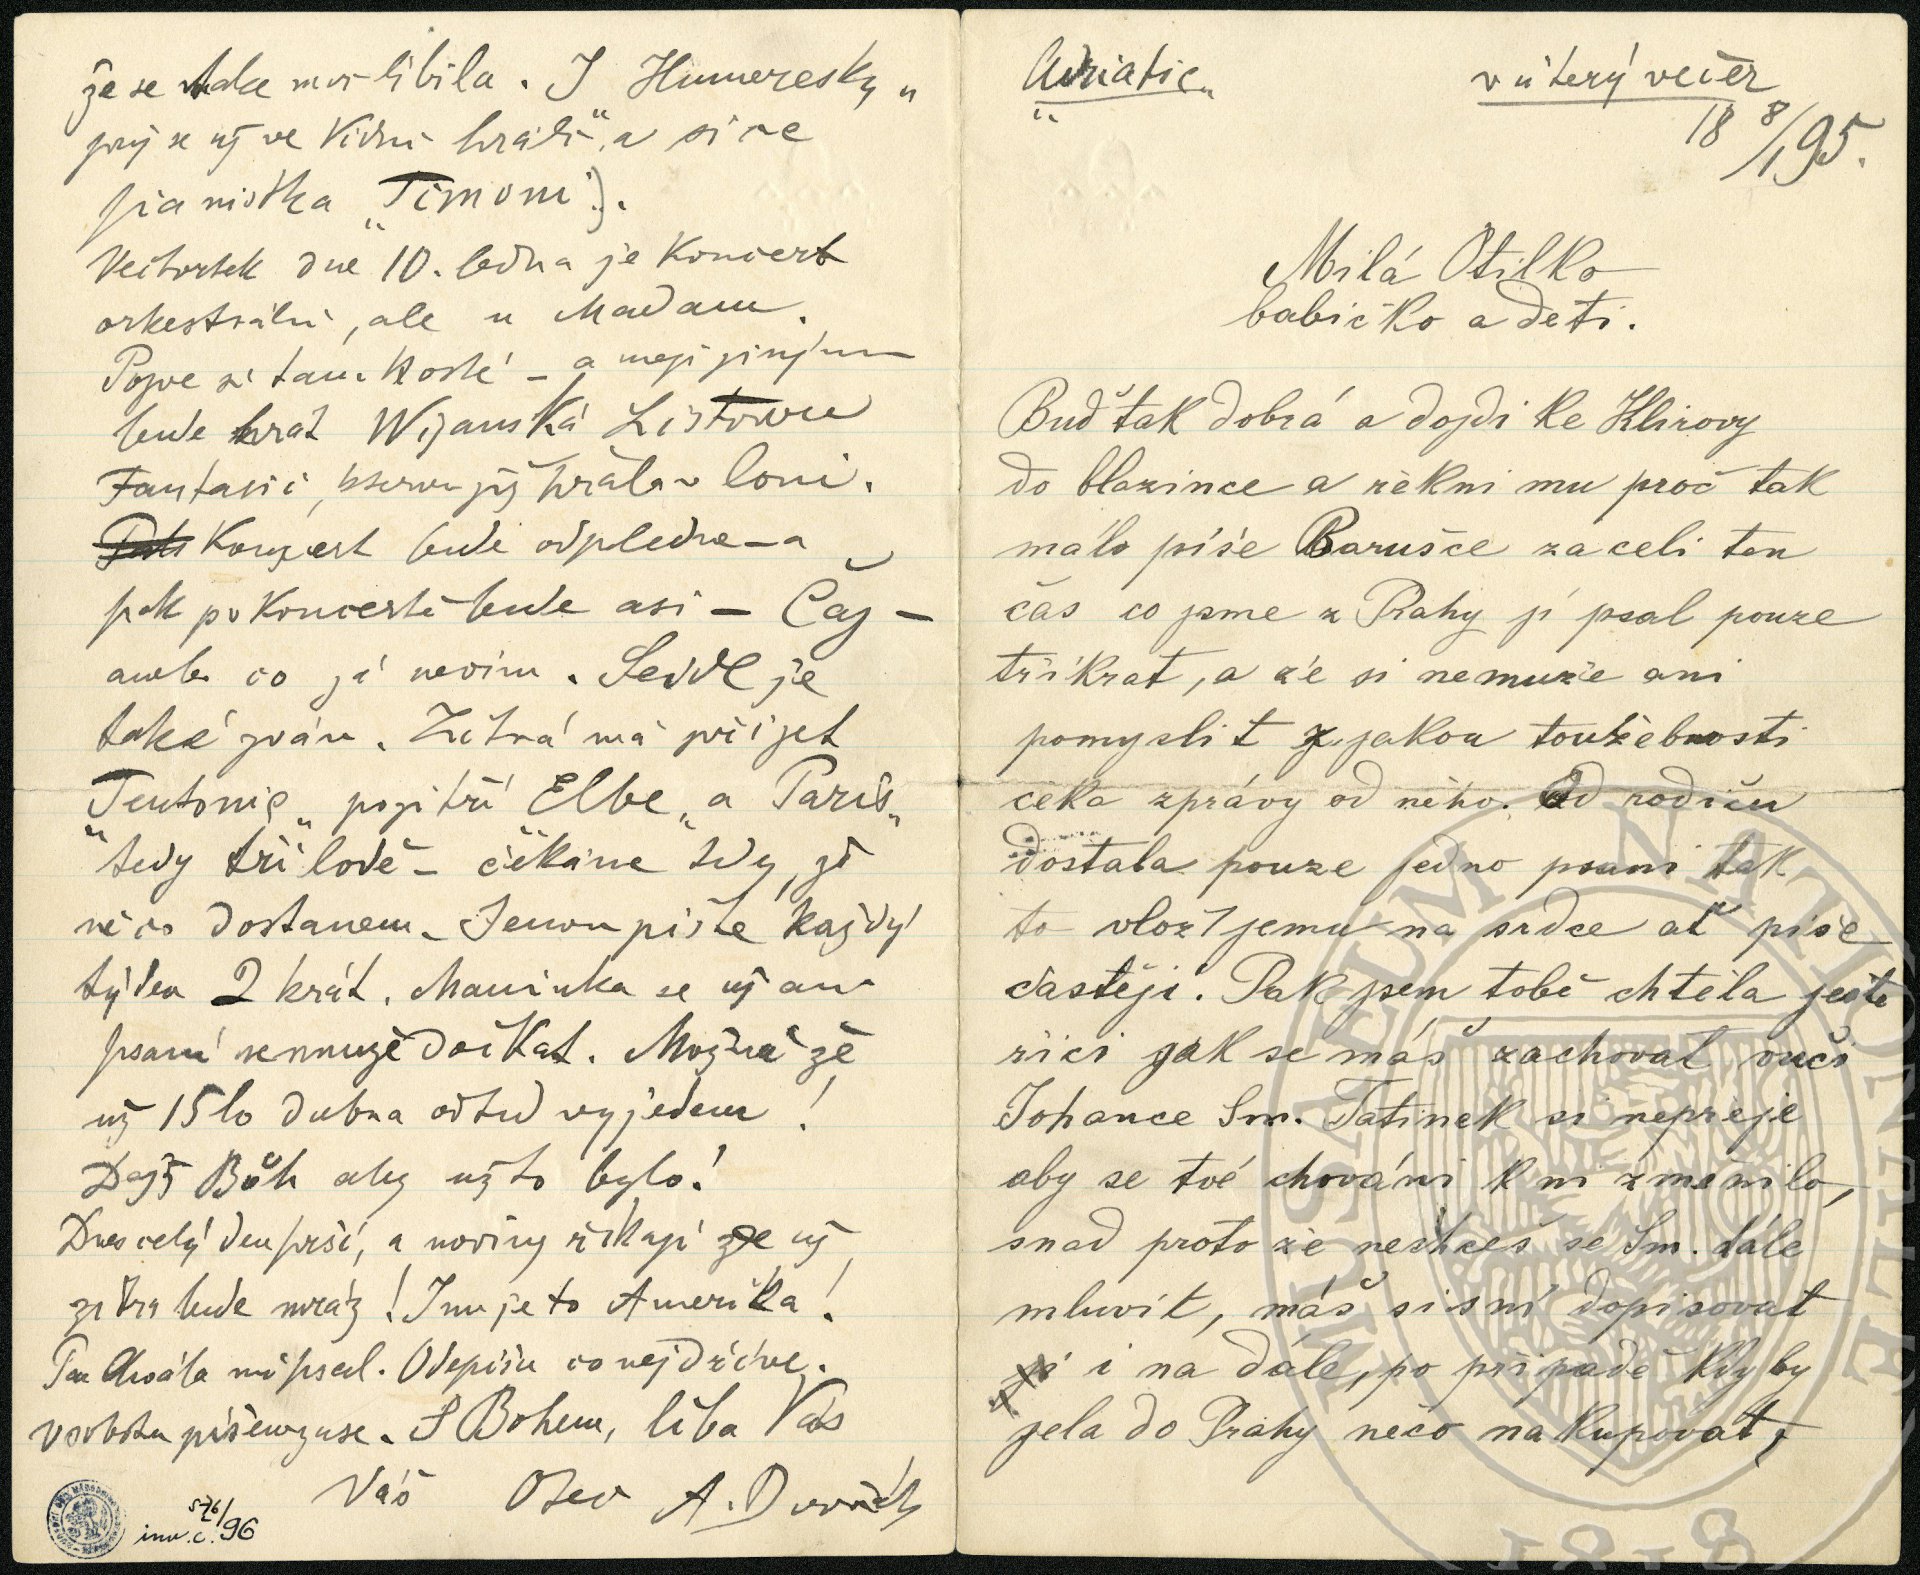 že se také moc líbila. I „Humoresky“
prý se už ve Vídni hráli, a sice
pianistka „Timoni“).
Ve čtvrtek dne 10. ledna je koncert
orkestrální, ale u Madam.
Pozve si tam hosté – a mezi jinými
bude hrát Wizanská Listovu
Fantasii, kterou již hrála v loni.
Konzert bude odpledne – a
pak po koncertě bude asi – Čaj –
aneb co já nevím. Seidl je
také zván. Zítra má přijet
„Teutonic“ pozitří „Elbe“ a „Paris“
tedy tři lodě – čekáme tedy, že
něco dostanem. Jenom pište každý
týden 2 krát. Maminka se už ani
psaní nemuže dočkat. Možná že
už 15ho dubna odtud vyjedem!
Dejž Bůh aby už to bylo!
Dnes celý den prší, a noviny říkají že už
zítra bude mráz! Inu je to Amerika!
Pan Chvála mi psal. Odepíšu co nejdříve.
V sobotu píšem zase. S Bohem, líbá Vás
Váš Otec A. Dvořák
576/
inv. č. 96
„Adriatic“
v úterý večer
18 8/1 95.
Milá Otilko
babičko a děti.
Buď tak dobrá a dojdi ke Klirovy
do blazince a řekni mu proč tak
málo píše Barušce za celi ten
čas co jsme z Prahy jí psal pouze
třikrat, a že si nemuže ani
pomyslit z jakou toužebnosti
čeka zprávy od něho. Od rodiču
dostala pouze jedno psani tak
to vlož jemu na srdce ať píše
častěji. Pak jsem tobě chtěla ještě
řici jak se máš zachovat vuči
Johance Sm. Tatinek si nepřeje
aby se tvé chováni k ni změnilo,
snad proto že nechceš se Sm. dále
mluvit, máš si sní dopisovat
i na dále, po připadě kdyby
jela do Prahy něco nakupovat,
MUSAEUM NATIONALE
1818